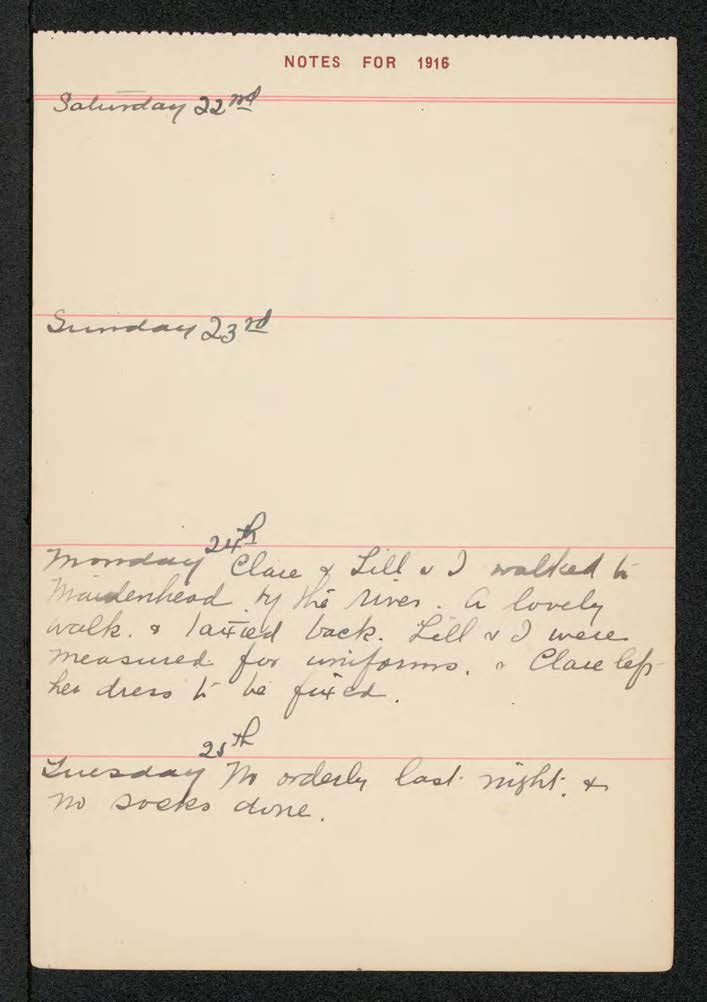 NOTES FOR 1916
Saturday 22nd
Sunday 23rd
Monday 24th Clare & Lill & I walked to
Maidenhead by the river. A lovely
walk. & taxied back. Lill & I were
measured for uniforms. & Clare left
her dress to be fixed.
Tuesday 25th No orderly last night. &
no socks done.